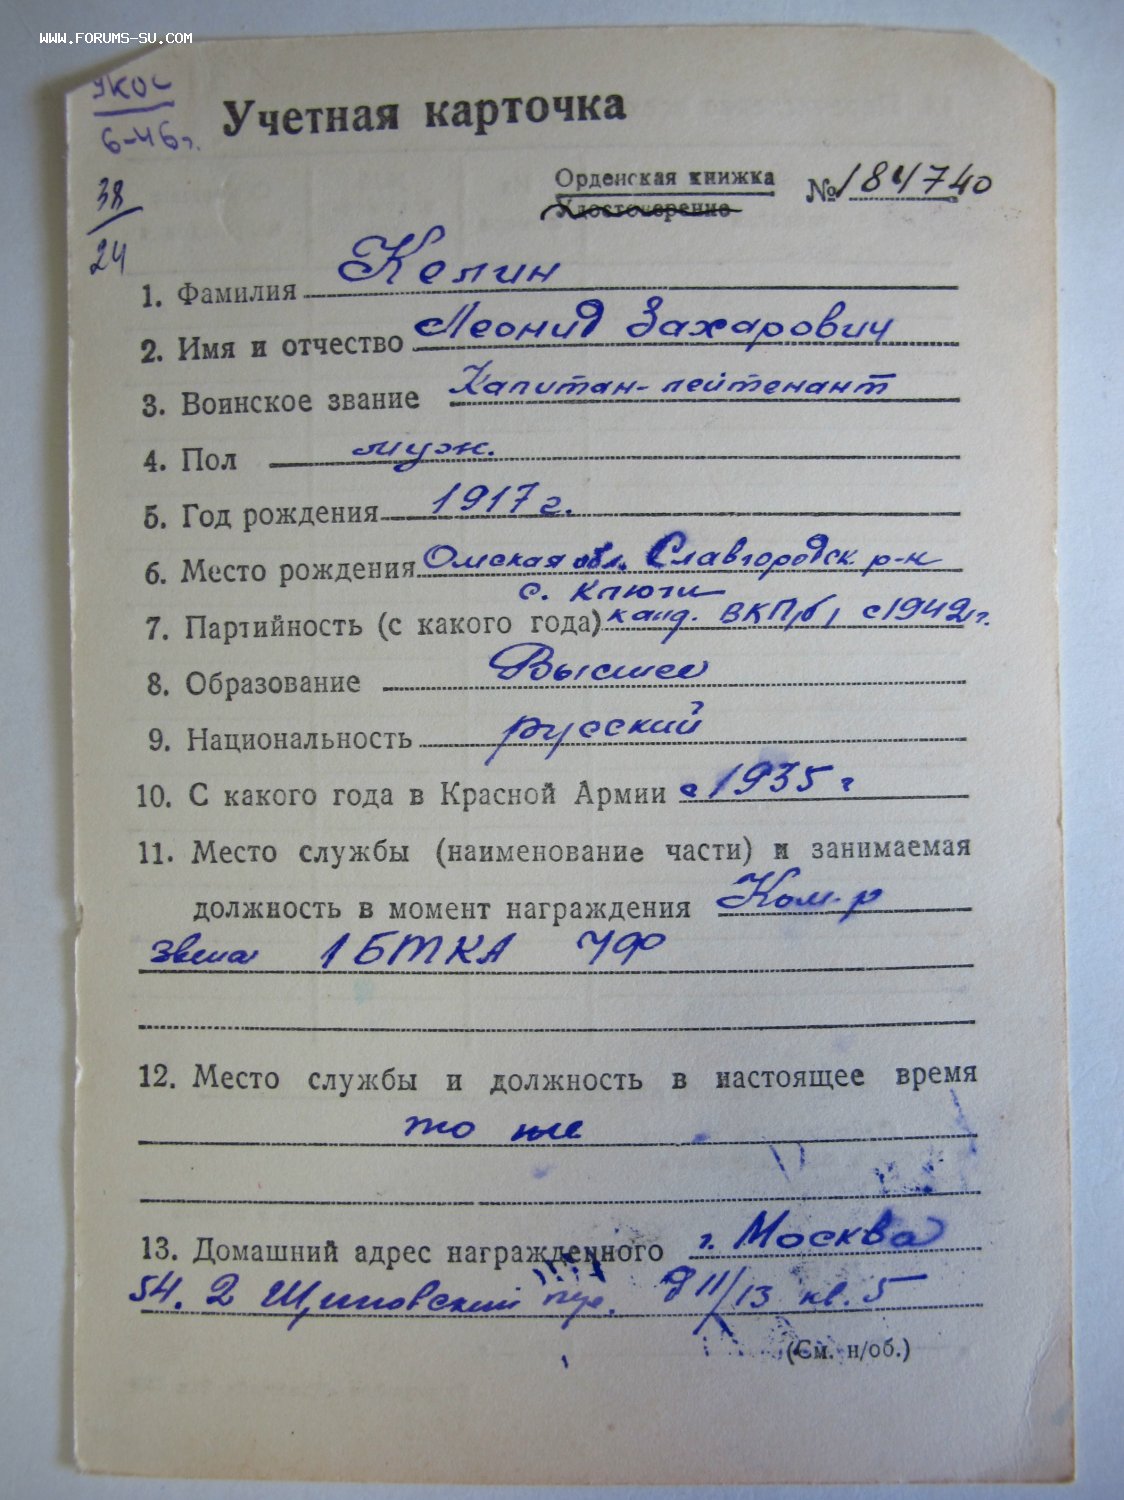 WWW.FORUMS-SU.COM
УКОС
6-46г.
38
24
Учетная карточка
Орденская книжка
Удостоверение
№ 184740
1. Фамилия Келин
2. Имя и отчество Леонид Захарович
3. Воинское звание Капитан-лейтенант
4. Пол муж.
5. Год рождения 1917 г.
6. Место рождения Омская обл. Славгородск. р-н
с. Ключи
7. Партийность (с какого года) канд. ВКП/б/ с 1942 г.
8. Образование Высшее
9. Национальность русский
10. С какого года в Красной Армии с 1935 г
11. Место службы (наименование части) и занимаемая
должность в момент награждения Ком-р
звена 1 БТКА ЧФ
12. Место службы и должность в настоящее время
то же
13. Домашний адрес награжденного г. Москва
54. 2 Щиповский пер. д 11/13 кв. 5
(См. н/об.)